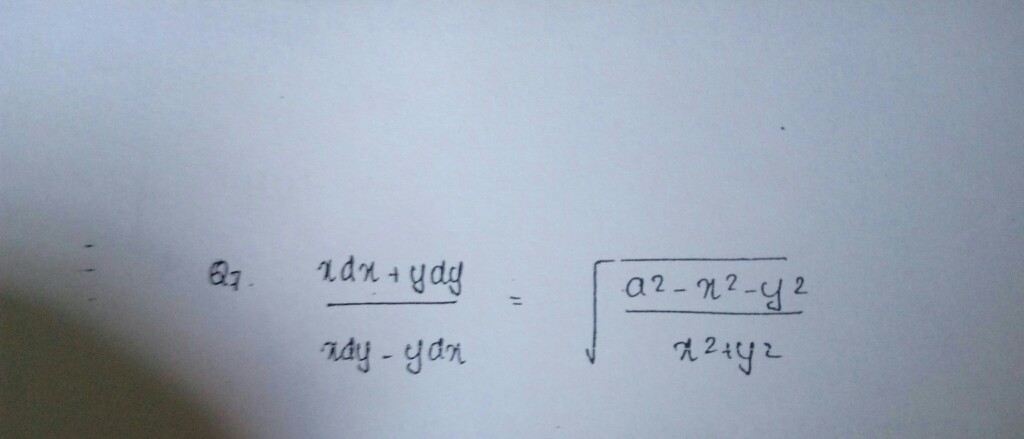 Q7. xdx + ydy / xdy - ydx = √ a2 - x2 - y2 / x2 + y2